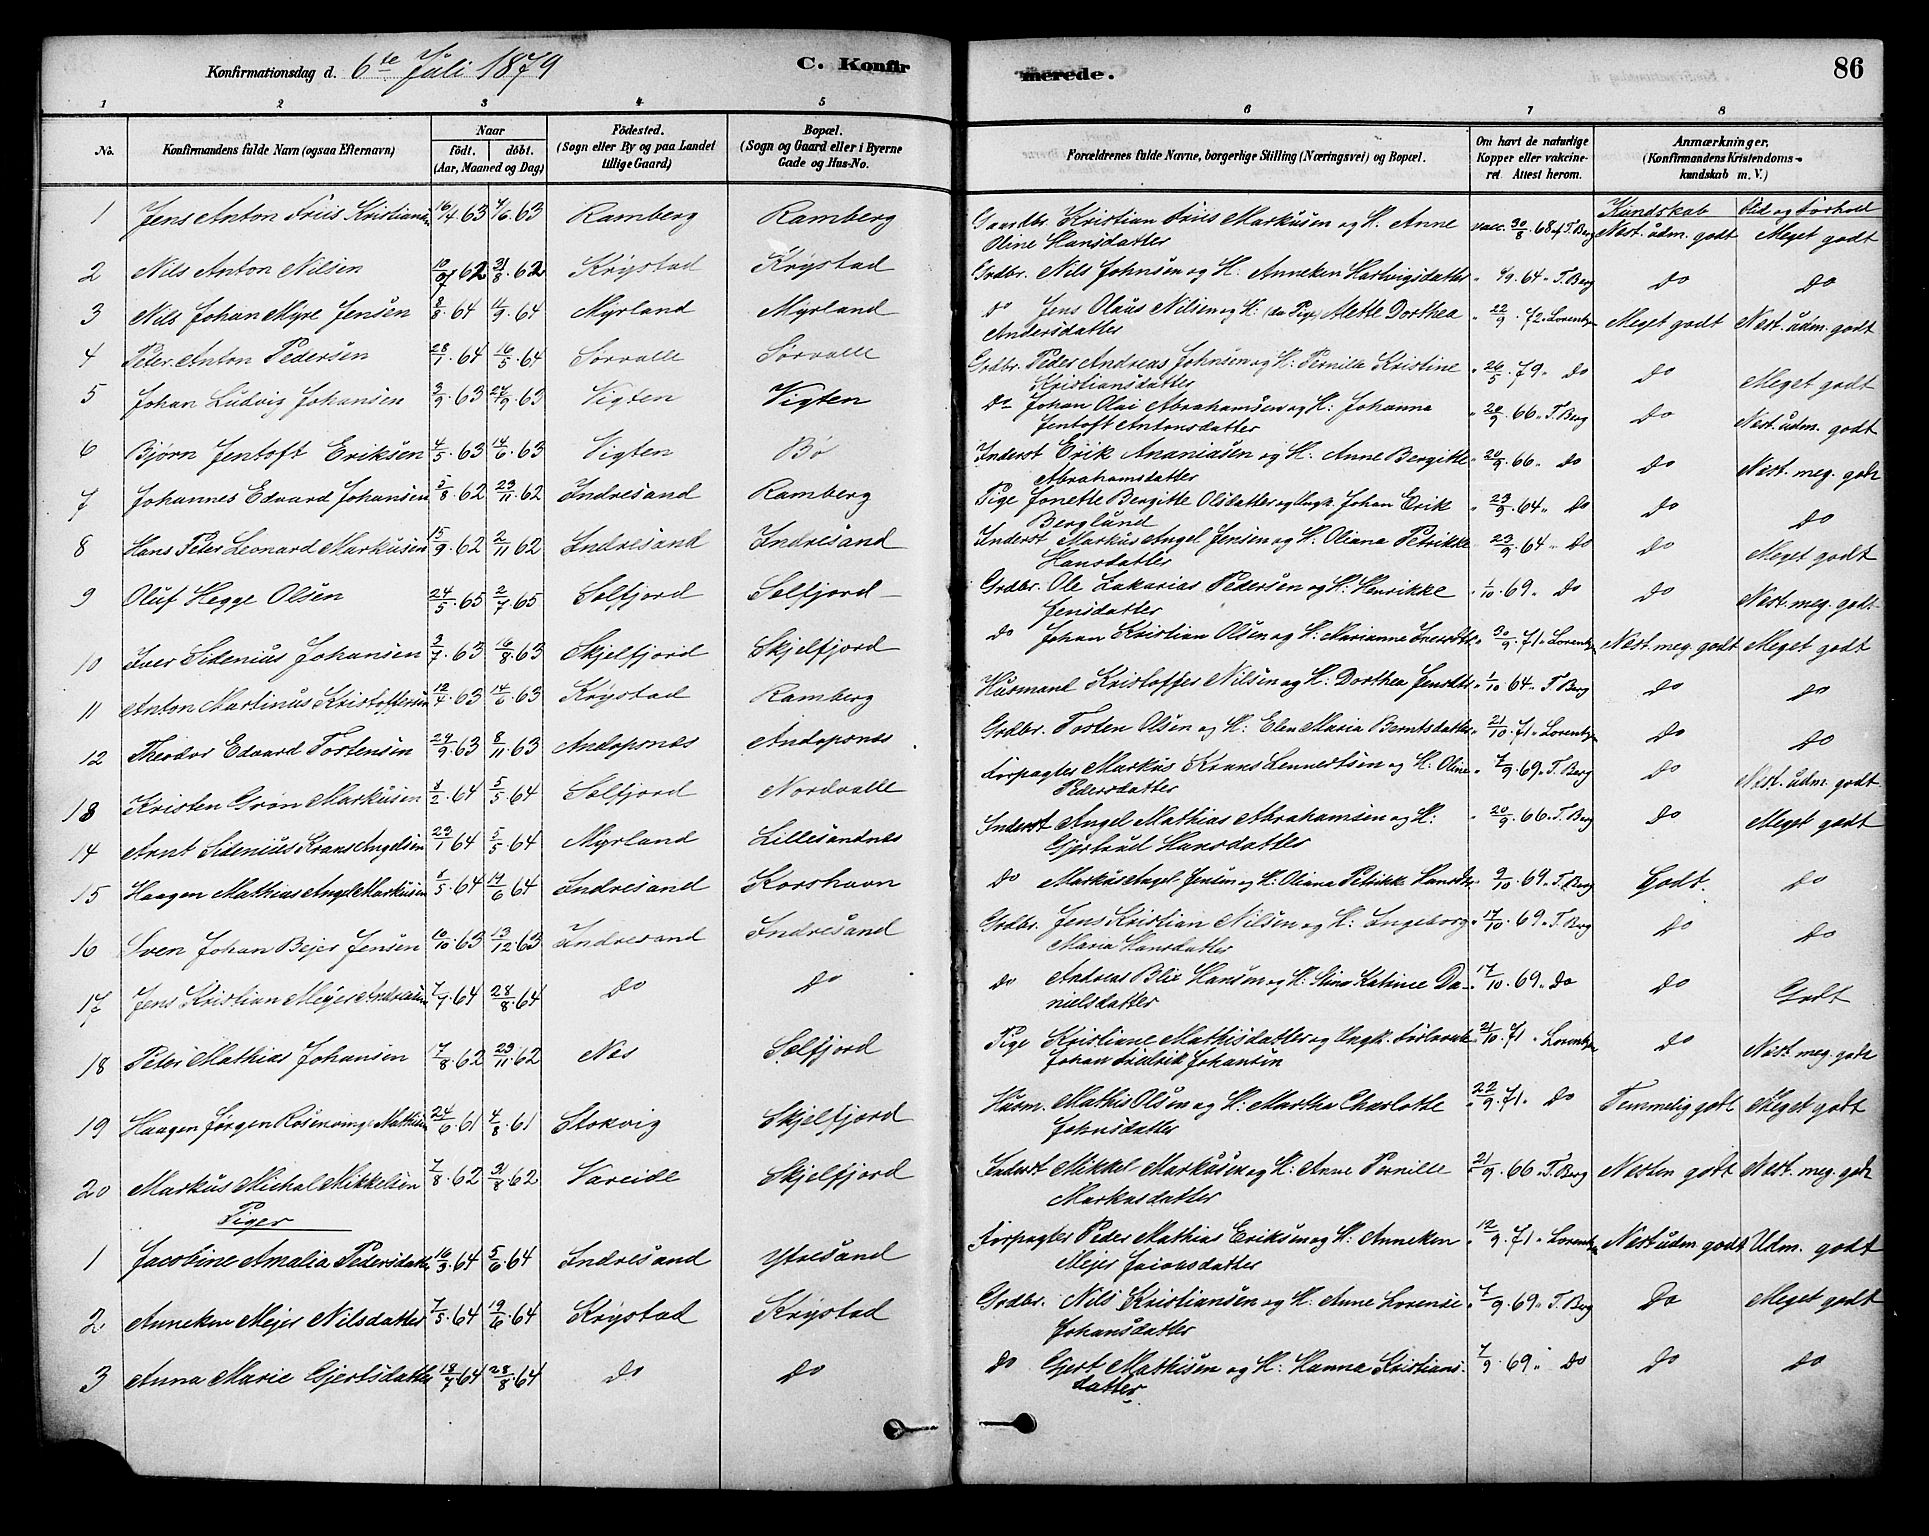 Konfirmationsdag d. 6te Juli 1879 C. Konfirmerede. 86
1 2 3 4 5 6 7 8
No. Konfirmandens fulde Navn (ogsaa Efternavn) Naar født. døbt. (Aar, Maaned og Dag) Fødested. (Sogn eller By og paa Landet tillige Gaard) Bopæl. (Sogn og Gaard eller i Byerne Gade og Hus-No. Forældrenes fulde Navne, borgerlige Stilling (Næringsvei) og Bopæl. Om havt de naturlige Kopper eller vakcineret. Attest herom. Anmærkninger. (Konfirmandens Kristendomskundskab m. V.)
Kundskab Flid og Forhold
1 Jens Anton Friis Kristiansen 16/4 63 4/6 63 Ramberg Ramberg Gaardbr. Kristian Friis Markusen og H. Anne vacc. 30/8 68 af T. Berg Nest. udm. godt Meget godt
Oline Hansdatter
2 Nils Anton Nilsen 62 31/8 62 Krystad Krystad Grdbr. Nils Johnsen og H. Anneken Hartvigsdatter " 4/9 64 " T. Berg do do
3 Nils Johan Myre Jensen 8/8 64 11/9 64 Myrland Myrland do Jens Olaus Nilsen og H. (da Pige) Alette Dorthea " 22/9 72 " Lorentzen Meget godt Nest. udm. godt
Andersdatter
4 Peter Anton Pedersen 28/1 64 16/5 64 Sørvalle Sørvalle Grdbr. Peder Andreas Johnsen og H. Pernille Kristine " 26/5 79 " do do Meget godt
Kristiansdatter
5 Johan Ludvig Johansen 3/9 63 27/9 63 Vigten Vigten do Johan Olai Abrahamsen og H. Johanna " 20/9 66 " T. Berg do Nest. udm. godt
Jentoft Antonsdatter
6 Bjørn Jentoft Eriksen 4/5 63 14/6 63 Vigten Bø Inderst Erik Ananiasen og H. Anne Bergitte " 20/9 66 " do do Nest. meg. godt
Abrahamsdatter
7 Johannes Edvard Johansen 5/8 62 23/11 62 Indresand Ramberg Pige Jonette Bergitte Olsdatter og Ungk. Johan Erik " 23/9 64 " do do do
Berglund
8 Hans Peter Leonard Markusen 15/9 62 2/11 62 Indresand Indresand Inderst Markus Angel Jensen og H. Oliana Petrikke " 23/9 64 " do do Meget godt
Hansdatter
9 Oluf Hegge Olsen 24/5 65 2/7 65 Solfjord Solfjord Grdbr. Ole Zakarias Pedersen og H. Henrikke " 1/10 69 " do do Nest. meg. godt
Jensdatter
10 Iver Sidenius Johansen 3/7 63 16/8 63 Skjelfjord Skjelfjord do Johan Kristian Olsen og H. Marianne Iversdtr " 30/9 71 " Lorentzen Nest. meg. godt Meget godt
11 Anton Martinus Kristoffersen 12/4 63 14/6 63 Krystad Ramberg Husmand Kristoffer Nilsen og H. Dorthea Jensdtr " 1/10 64 " T. Berg do do
12 Theodor Edvard Tostensen 29/9 63 8/11 63 Andopsnes Andopsnes Grdbr. Tosten Olsen og H. Elen Maria Berntsdatter " 21/10 71 " Lorentzen do do
13 Kristen Grøn Markusen 8/2 64 5/5 64 Solfjord Nordvalle Forpagter Markus Krans Lennertsen og H. Oline " 7/9 69 " T. Berg do Nest. udm. godt
Pedersdatter
14 Arnt Sidenius Krans Angelsen 23/1 64 5/5 64 Myrland Lillesandnes Inderst Angel Mathias Abrahamsen og H. " 20/9 66 " T. Berg do Meget godt
Gjertrud Hansdatter
15 Haagen Mathias Angel Markusen 8/5 64 19/6 64 Indresand Korshavn do Markus Angel Jensen og H. Oliana Petrikke Hansdtr " 9/10 69 " T. Berg Godt. do
16 Sven Johan Bejer Jensen 10/10 63 13/12 63 Indresand Indresand Grdbr. Jens Kristian Nilsen og H. Ingeborg " 17/10 69 " T. Berg do do
Maria Hansdatter
17 Jens Kristian Mejer Andreasen 7/7 64 28/8 64 do do do Andreas Blix Hansen og H. Stina Katinie Da- " 17/10 69 " do do Godt
nielsdatter
18 Peter Mathias Johansen 7/8 62 23/11 62 Næs Solfjord Pige Kristiane Mathisdatter og Ungk. Forlovede " 21/10 71 " Lorentzen do Nest. meg. godt
Johan Fredrik Johansen
19 Haagen Jørgen Rosenvinge Mathisen 24/6 61 4/8 61 Stokvig Skjelfjord Husm. Mathis Olsen og H. Martha Charlotte " 22/9 71 " do Temmelig godt Meget godt
Johnsdatter
20 Markus Michal Mikkelsen 7/8 62 31/8 62 Vareide Skjelfjord Inderst Mikkel Markusen og H. Anne Pernille " 21/9 66 " T. Berg Nesten godt Nest. meg. godt
Markusdatter
Piger
1 Jacobine Amalia Pedersdatter 16/3 64 5/6 64 Indresand Ytresand Forpagter Peder Mathias Eriksen og H. Anneken " 12/9 71 " Lorentzen Nest. udm. godt Udm. godt
Mejer datter
2 Anneken Mejer Nilsdatter 7/5 64 19/6 64 Krystad Krystad Grdbr. Nils Kristiansen og H. Anne Lorense " 7/9 69 " T. Berg do Meget godt
Johansdatter
3 Anna Marie Gjertsdatter 18/7 64 28/8 64 do do do Gjert Mathisen og H. Hanna Kristians- " 7/9 69 " do do do
datter